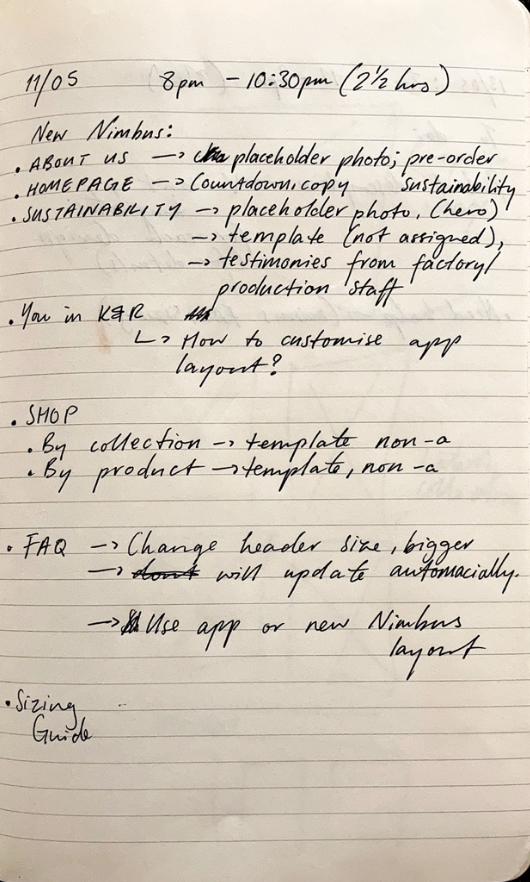 11/05 8pm - 10:30pm (2½ hrs)
New Nimbus:
• ABOUT US -> placeholder photo; pre-order
• HOMEPAGE -> Countdown, copy sustainability
• SUSTAINABILITY -> placeholder photo, (hero)
-> template (not assigned),
-> testimonies from factory/
production staff
• You in K&R
↳ How to customise app
layout?
• SHOP
• By collection -> template non-a
• By product -> template, non-a
• FAQ -> Change header size, bigger
-> dont will update automacially.
-> Use app or new Nimbus
layout
• Sizing
Guide